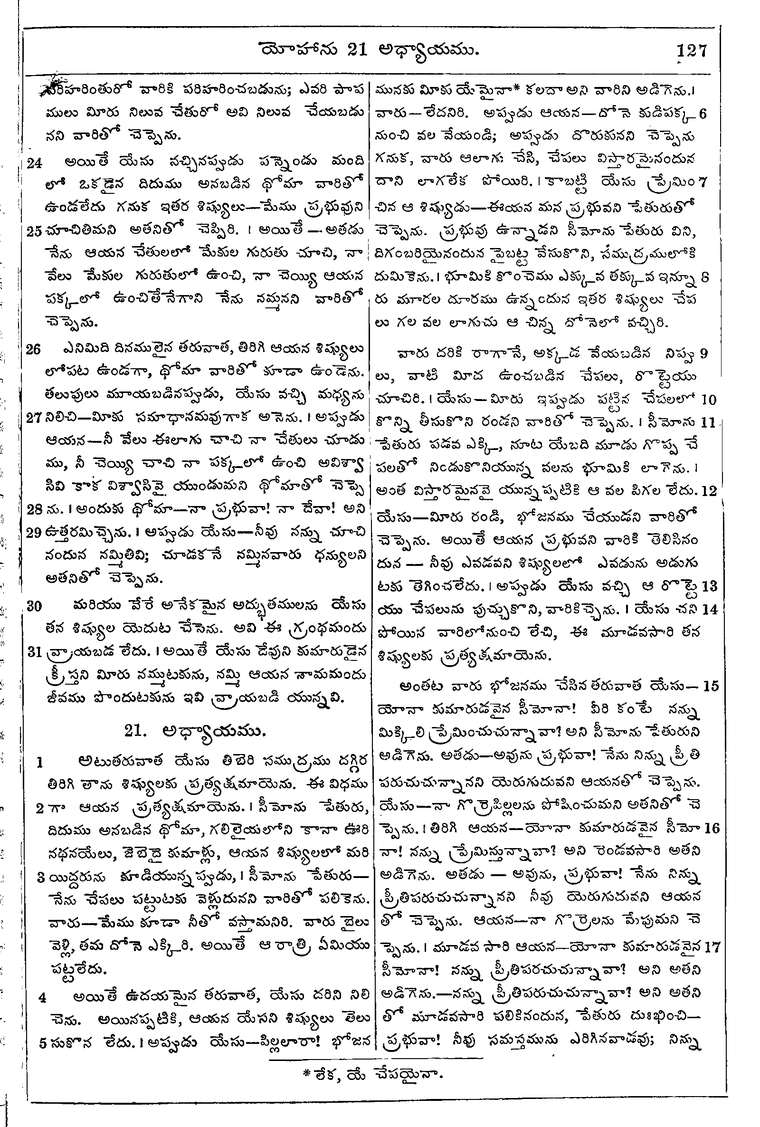 యోహాను 21 అధ్యాయము.
127
పరిహరింతురో వారికి పరిహరించబడును; ఎవరి పాప
ములు మీరు నిలువ చేతురో అవి నిలువ చేయబడు
నని వారితో చెప్పెను.
24 అయితే యేసు వచ్చినప్పుడు పన్నెండు మంది
లో ఒకడైన దిదుము అనబడిన థోమా వారితో
ఉండలేదు గనుక ఇతర శిష్యులు—మేము ప్రభువుని
25 చూచితిమని అతనితో చెప్పిరి. । అయితే—అతడు
నేను ఆయన చేతులలో మేకుల గురుతు చూచి, నా
వేలు మేకుల గురుతులో ఉంచి, నా చెయ్యి ఆయన
పక్కలో ఉంచితేనేగాని నేను నమ్మనని వారితో
చెప్పెను.
26 ఎనిమిది దినములైన తరువాత, తిరిగి ఆయన శిష్యులు
లోపట ఉండగా, థోమా వారితో కూడా ఉండెను.
తలుపులు మూయబడినప్పుడు, యేసు వచ్చి మధ్యను
27 నిలిచి—మీకు సమాధానమవుగాక అనెను. । అప్పుడు
ఆయన—నీ వేలు ఈలాగు చాచి నా చేతులు చూడు
ము, నీ చెయ్యి చాచి నా పక్కలో ఉంచి అవిశ్వా
సివి కాక విశ్వాసివై యుండుమని థోమాతో చెప్పె
28 ను. । అందుకు థోమా—నా ప్రభువా! నా దేవా! అని
29 ఉత్తరమిచ్చెను. । అప్పుడు యేసు—నీవు నన్ను చూచి
నందున నమ్మితివి; చూడకనే నమ్మినవారు ధన్యులని
అతనితో చెప్పెను.
30 మరియు వేరే అనేకమైన అద్భుతములను యేసు
తన శిష్యుల యెదుట చేసెను. అవి ఈ గ్రంథమందు
31 వ్రాయబడ లేదు. । అయితే యేసు దేవుని కుమారుడైన
క్రీస్తని మీరు నమ్ముటకును, నమ్మి ఆయన నామమందు
జీవము పొందుటకును ఇవి వ్రాయబడి యున్నవి.
21. అధ్యాయము.
1 అటుతరువాత యేసు తిబెరి సముద్రము దగ్గిర
తిరిగి తాను శిష్యులకు ప్రత్యక్షమాయెను. ఈ విధము
2 గా ఆయన ప్రత్యక్షమాయెను. । సీమోను పేతురు,
దిదుము అనబడిన థోమా, గలిలైయలోని కానా ఊరి
నథనయేలు, జెబెదై కుమాళ్లు, ఆయన శిష్యులలో మరి
3 యిద్దరును కూడియున్నప్పుడు, । సీమోను పేతురు—
నేను చేపలు పట్టుటకు వెళ్లుదునని వారితో పలికెను.
వారు—మేము కూడా నీతో వస్తామనిరి. వారు బైలు
వెళ్లి, తమ దోనె ఎక్కిరి. అయితే ఆ రాత్రి ఏమియు
పట్టలేదు.
4 అయితే ఉదయమైన తరువాత, యేసు దరిని నిలి
చెను. అయినప్పటికి, ఆయన యేసని శిష్యులు తెలు
5 సుకొన లేదు. । అప్పుడు యేసు—పిల్లలారా! భోజన
మునకు మీకు యేమైనా* కలదా అని వారిని అడిగెను. ।
వారు—లేదనిరి. అప్పుడు ఆయన—దోనె కుడిపక్క 6
నుంచి వల వేయండి; అప్పుడు దొరుకునని చెప్పెను
గనుక, వారు ఆలాగు చేసి, చేపలు విస్తారమైనందున
దాని లాగలేక పోయిరి. । కాబట్టి యేసు ప్రేమిం 7
చిన ఆ శిష్యుడు—ఈయన మన ప్రభువని పేతురుతో
చెప్పెను. ప్రభువు ఉన్నాడని సీమోను పేతురు విని,
దిగంబరియైనందున పైబట్ట వేసుకొని, సముద్రములోకి
దుమికెను. । భూమికి కొంచెము ఎక్కువ తక్కువ ఇన్నూ 8
రు మూరల దూరము ఉన్నందున ఇతర శిష్యులు చేప
లు గల వల లాగుచు ఆ చిన్న దోనెలో వచ్చిరి.
వారు దరికి రాగానే, అక్కడ వేయబడిన నిప్పు 9
లు, వాటి మీద ఉంచబడిన చేపలు, రొట్టెయు
చూచిరి. । యేసు—మీరు ఇప్పుడు పట్టిన చేపలలో 10
కొన్ని తీసుకొని రండని వారితో చెప్పెను. । సీమోను 11
పేతురు పడవ ఎక్కి, నూట యేబది మూడు గొప్ప చే
పలతో నిండుకొనియున్న వలను భూమికి లాగెను. ।
అంత విస్తారమైనవై యున్నప్పటికి ఆ వల పిగల లేదు. 12
యేసు—మీరు రండి, భోజనము చేయుడని వారితో
చెప్పెను. అయితే ఆయన ప్రభువని వారికి తెలిసినం
దున—నీవు ఎవడవని శిష్యులలో ఎవడును అడుగు
టకు తెగించలేదు. । అప్పుడు యేసు వచ్చి ఆ రొట్టె 13
యు చేపలును పుచ్చుకొని, వారికిచ్చెను. । యేసు చని 14
పోయిన వారిలోనుంచి లేచి, ఈ మూడవసారి తన
శిష్యులకు ప్రత్యక్షమాయెను.
అంతట వారు భోజనము చేసిన తరువాత యేసు— 15
యోనా కుమారుడవైన సీమోనా! వీరి కంటే నన్ను
మిక్కిలి ప్రేమించుచున్నావా? అని సీమోను పేతురుని
అడిగెను. అతడు—అవును ప్రభువా! నేను నిన్ను ప్రీతి
పరుచుచున్నానని యెరుగుదువని ఆయనతో చెప్పెను.
యేసు—నా గొర్రెపిల్లలను పోషించుమని అతనితో చె
ప్పెను. । తిరిగి ఆయన—యోనా కుమారుడవైన సీమో 16
నా! నన్ను ప్రేమిస్తున్నావా? అని రెండవసారి అతని
అడిగెను. అతడు—అవును, ప్రభువా! నేను నిన్ను
ప్రీతిపరుచుచున్నానని నీవు యెరుగుదువని ఆయన
తో చెప్పెను. ఆయన—నా గొర్రెలను మేపుమని చె
ప్పెను. । మూడవ సారి ఆయన—యోనా కుమారుడవైన 17
సీమోనా! నన్ను ప్రీతిపరచుచున్నావా? అని అతని
అడిగెను.—నన్ను ప్రీతిపరుచుచున్నావా? అని అతని
తో మూడవసారి పలికినందున, పేతురు దుఃఖించి—
ప్రభువా! నీవు సమస్తమును ఎరిగినవాడవు; నిన్ను
* లేక, యే చేపయైనా.